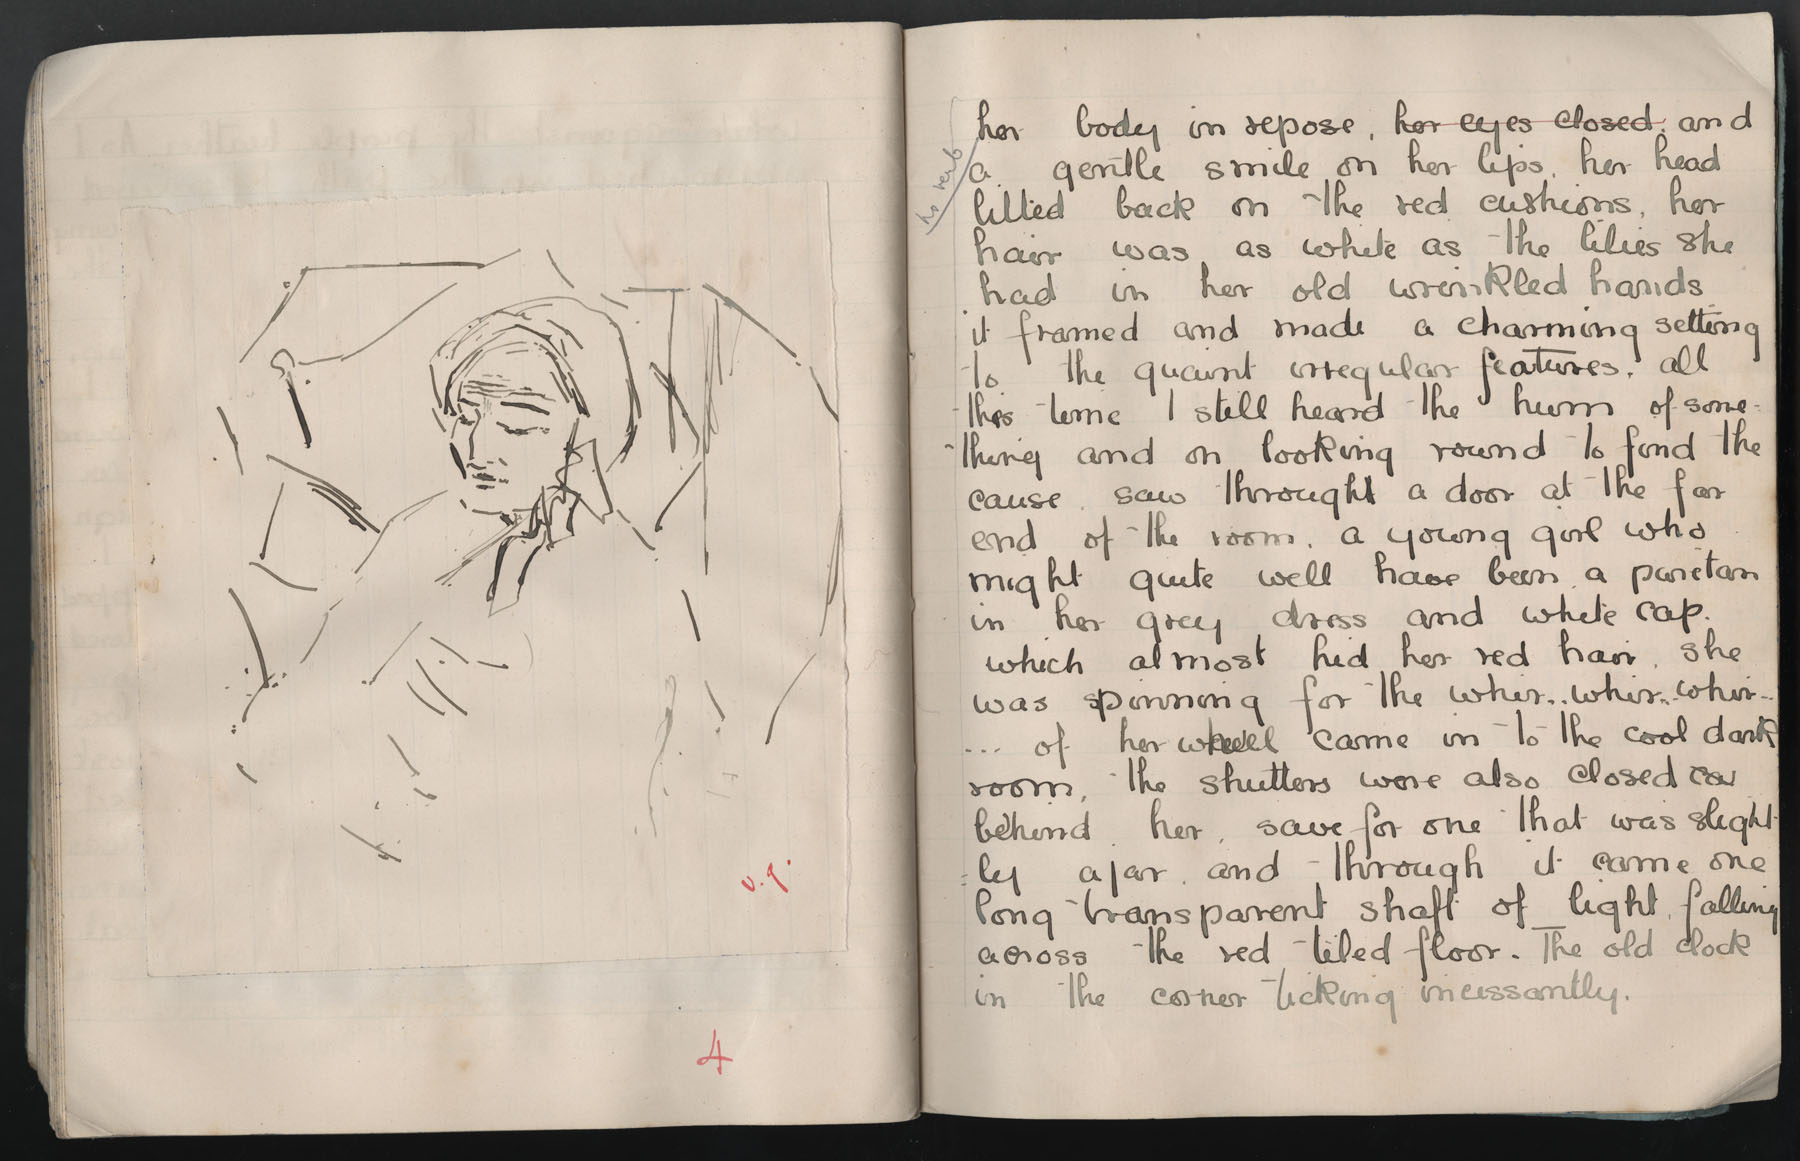 v.g.
4
no verb
her body in repose, her eyes closed, and
a gentle smile on her lips, her head
lilted back on the red cushions, her
hair was as white as the lilies she
had in her old wrinkled hands
it framed and made a charming setting
to the quaint irregular features, all
this time I still heard the hum of some-
thing and on looking round to find the
cause, saw throught a door at the far
end of the room, a young girl who
might quite well have been a puretan
in her grey dress and white cap.
which almost hid her red hair, she
was spinning for the whir.. whir.. whir..
... of her wheel came in to the cool dark
room, the shutters were also closed
behind her, save for one that was slight
ly ajar, and through it came one
long transparent shaft of light, falling
across the red tiled floor. The old clock
in the corner ticking incessantly.